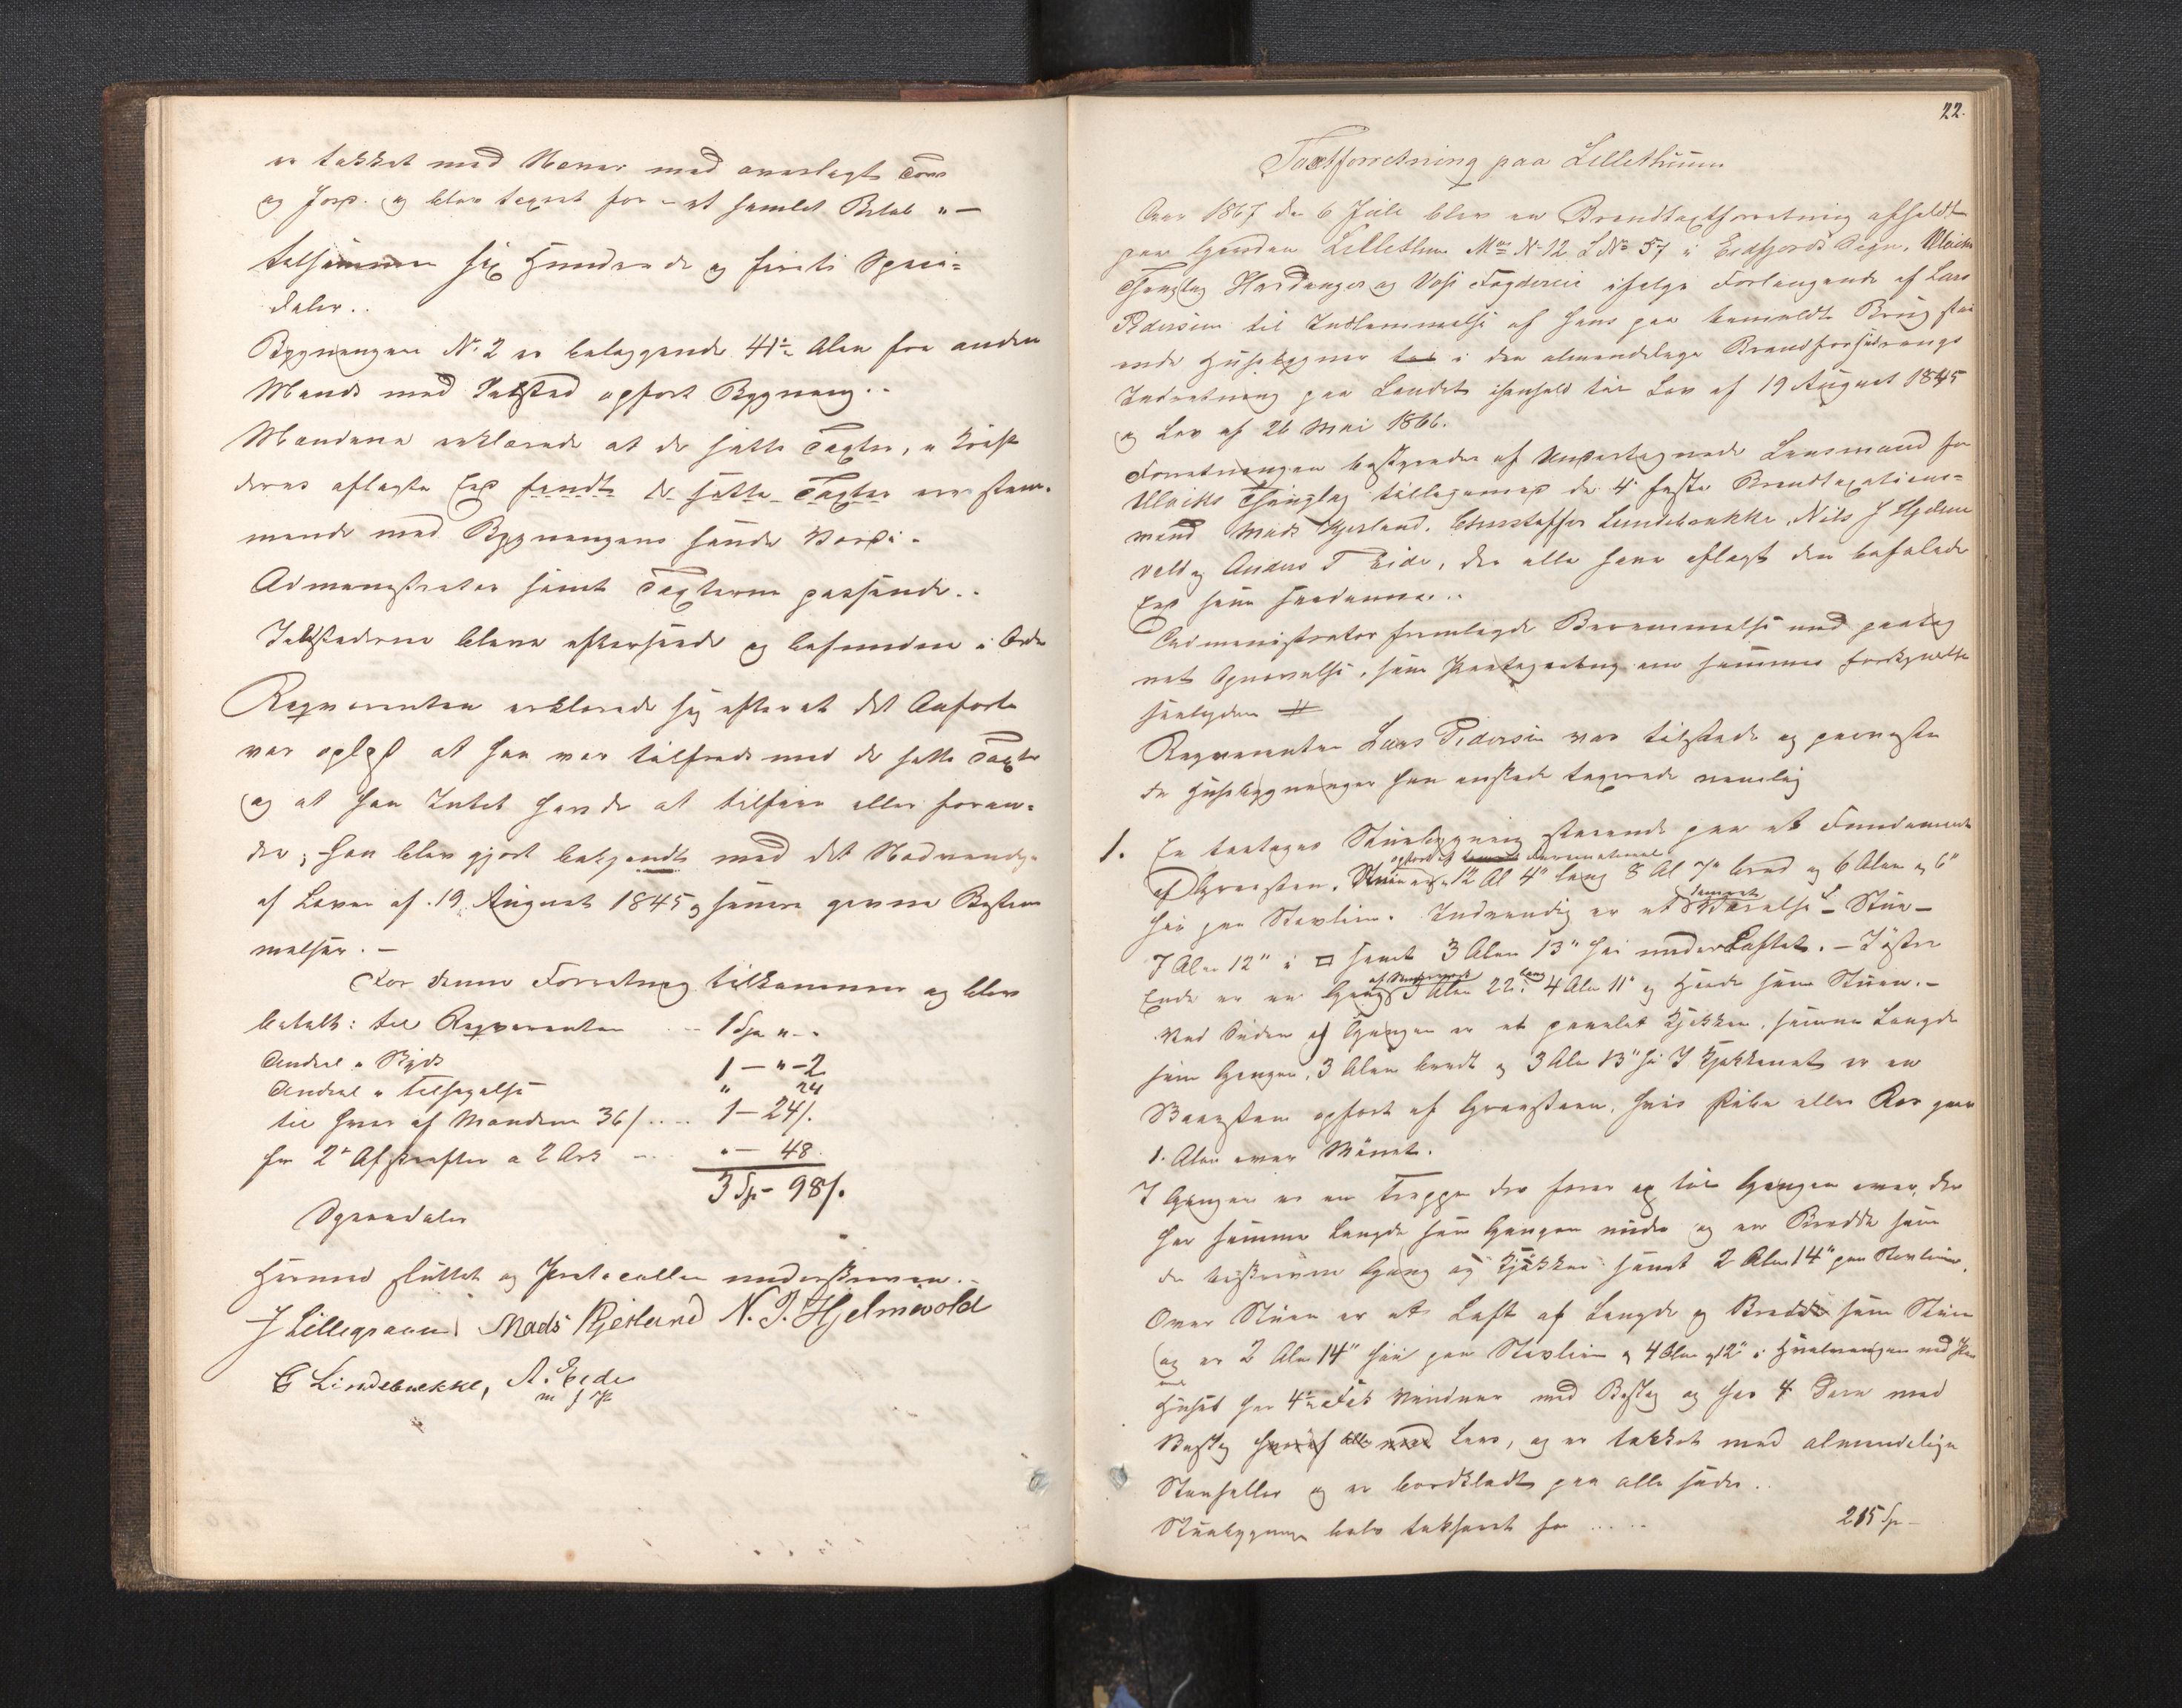 er tækket med Næver med overlagt Torv
og Jord. og blev taxeret for et samlet Beløb "—
tilsammen sex Hundrede og firti Speci-
daler..
Bygningen No 2 er beliggende 41½ Alen fra anden
Mands med Ildsted opført Bygning..
Mændene erklærede at de satte Taxter, i Kraft
deres aflagte Eed fandt de satte Taxter overstem-
mende med Bygningens sande Værdi.
Administrator fandt Taxterne passende..
Ildstederne bleve efterseede og befundne i Orden
Reqvirenten erklærede sig efter at det Anførte
var oplæst at han var tilfreds med de satte Taxter
og at han Intet havde at tilføie eller foran-
dre; han blev gjort bekjendt med det Nødvendige
af Loven af 19 August 1845 og senere givne Bestem
melser. —
For denne Forretning tilkommer og blev
betalt: til Reqvirenten .. 1 Sp " ..
Andeel i Skyds 1 — " — 2
Andeel i Tilsigelse " 24
til hver af Mændene 36 / .... 1 — 24/.
for 2de Afskrifter a 2 Ark — .. " — 48.
3 Sp — 98/.
Speciedaler
Hermed sluttet og Protocollen underskreven. —
J Lillegraven Mads Kjerland N. J. Hjelmevold
C Lindebrekke, A. Eide
m f P
22.
Taxtforretning paa Lillethuun
Aar 1867 den 6 Juli blev en Brandtaxtforretning afholdt
paa Gaarden Lillethun Mat No 12 L No 57 i Eidfjords Sogn, Ulviks
Thinglag Hardanger og Voss Fogderie ifølge Forlangende af Lars
Pedersen til Indlemmelse af hans paa bemeldte Brug sta
ende Husebygning i den almindelige Brandforsikrings
Indretning paa Landet i henhold til Lov af 19 August 1845
og Lov af 26 Mai 1866.
Forretningen bestyredes af Undertegnede Lensmand for
Ulviks Thinglag tilligemed de 4 faste Brandtaxations-
mænd Mads Kjerland. Christoffer Lindebrække, Nils J Hjelme
vold og Anders T Eide, der alle have aflagt den befalede
Eed som saadanne...
Administrator fremlagde Berammelse med paateg
net Opnævnelse, som Paategning om sammes Forkyndelse
saalydende #
Reqvirenten Lars Pedersen var tilstede og paaviste
de Husebygninger han ønskede taxerede nemlig
1. En toetages Stuebygning staaende paa et Fundament
opført af Furumateriale
af Graasten. Stuen er 12 Al 4" lang 8 Al 7" bred og 6 Alen og 6"
høi paa Stavlinie. Indvendig er et Værelse — Stue —
7 Alen 12" i □ samt 3 Alen 13" høi under Loftet. — I østre
Ende er en Gang 3 Alen 22" lang 4 Alen 11" og Høide som Stuen. —
Ved Siden af Gangen er et panelet Kjøkken, samme Længde
som Gangen, 3 Alen bredt og 3 Alen 13" høi I Kjøkkenet er en
Skorsten opført af Graasteen, hvis Pibe eller Rør gaar
1. Alen over Mønet.
I Gangen er en Trappe der fører op til Gangen over, der
har samme Længde som Gangen nede og en Bredde som
de beskrevne Gang og Kjøkken samt 2 Alen 14" paa Stavlinie.
Over Stuen er et Loft af Længde og Bredde som Stuen
og er 2 Alen 14" høi paa Stavlinie og 4 Alen 12" i Hvelvingen
Huset har 4 Fag Vinduer med Beslag og har 4 Døre med
Beslag Laas, og er tækket med almindelige
Steenheller og er bordklædt paa alle Sider..
Stuebygningen blev taxeret for ..... 215 Sp —